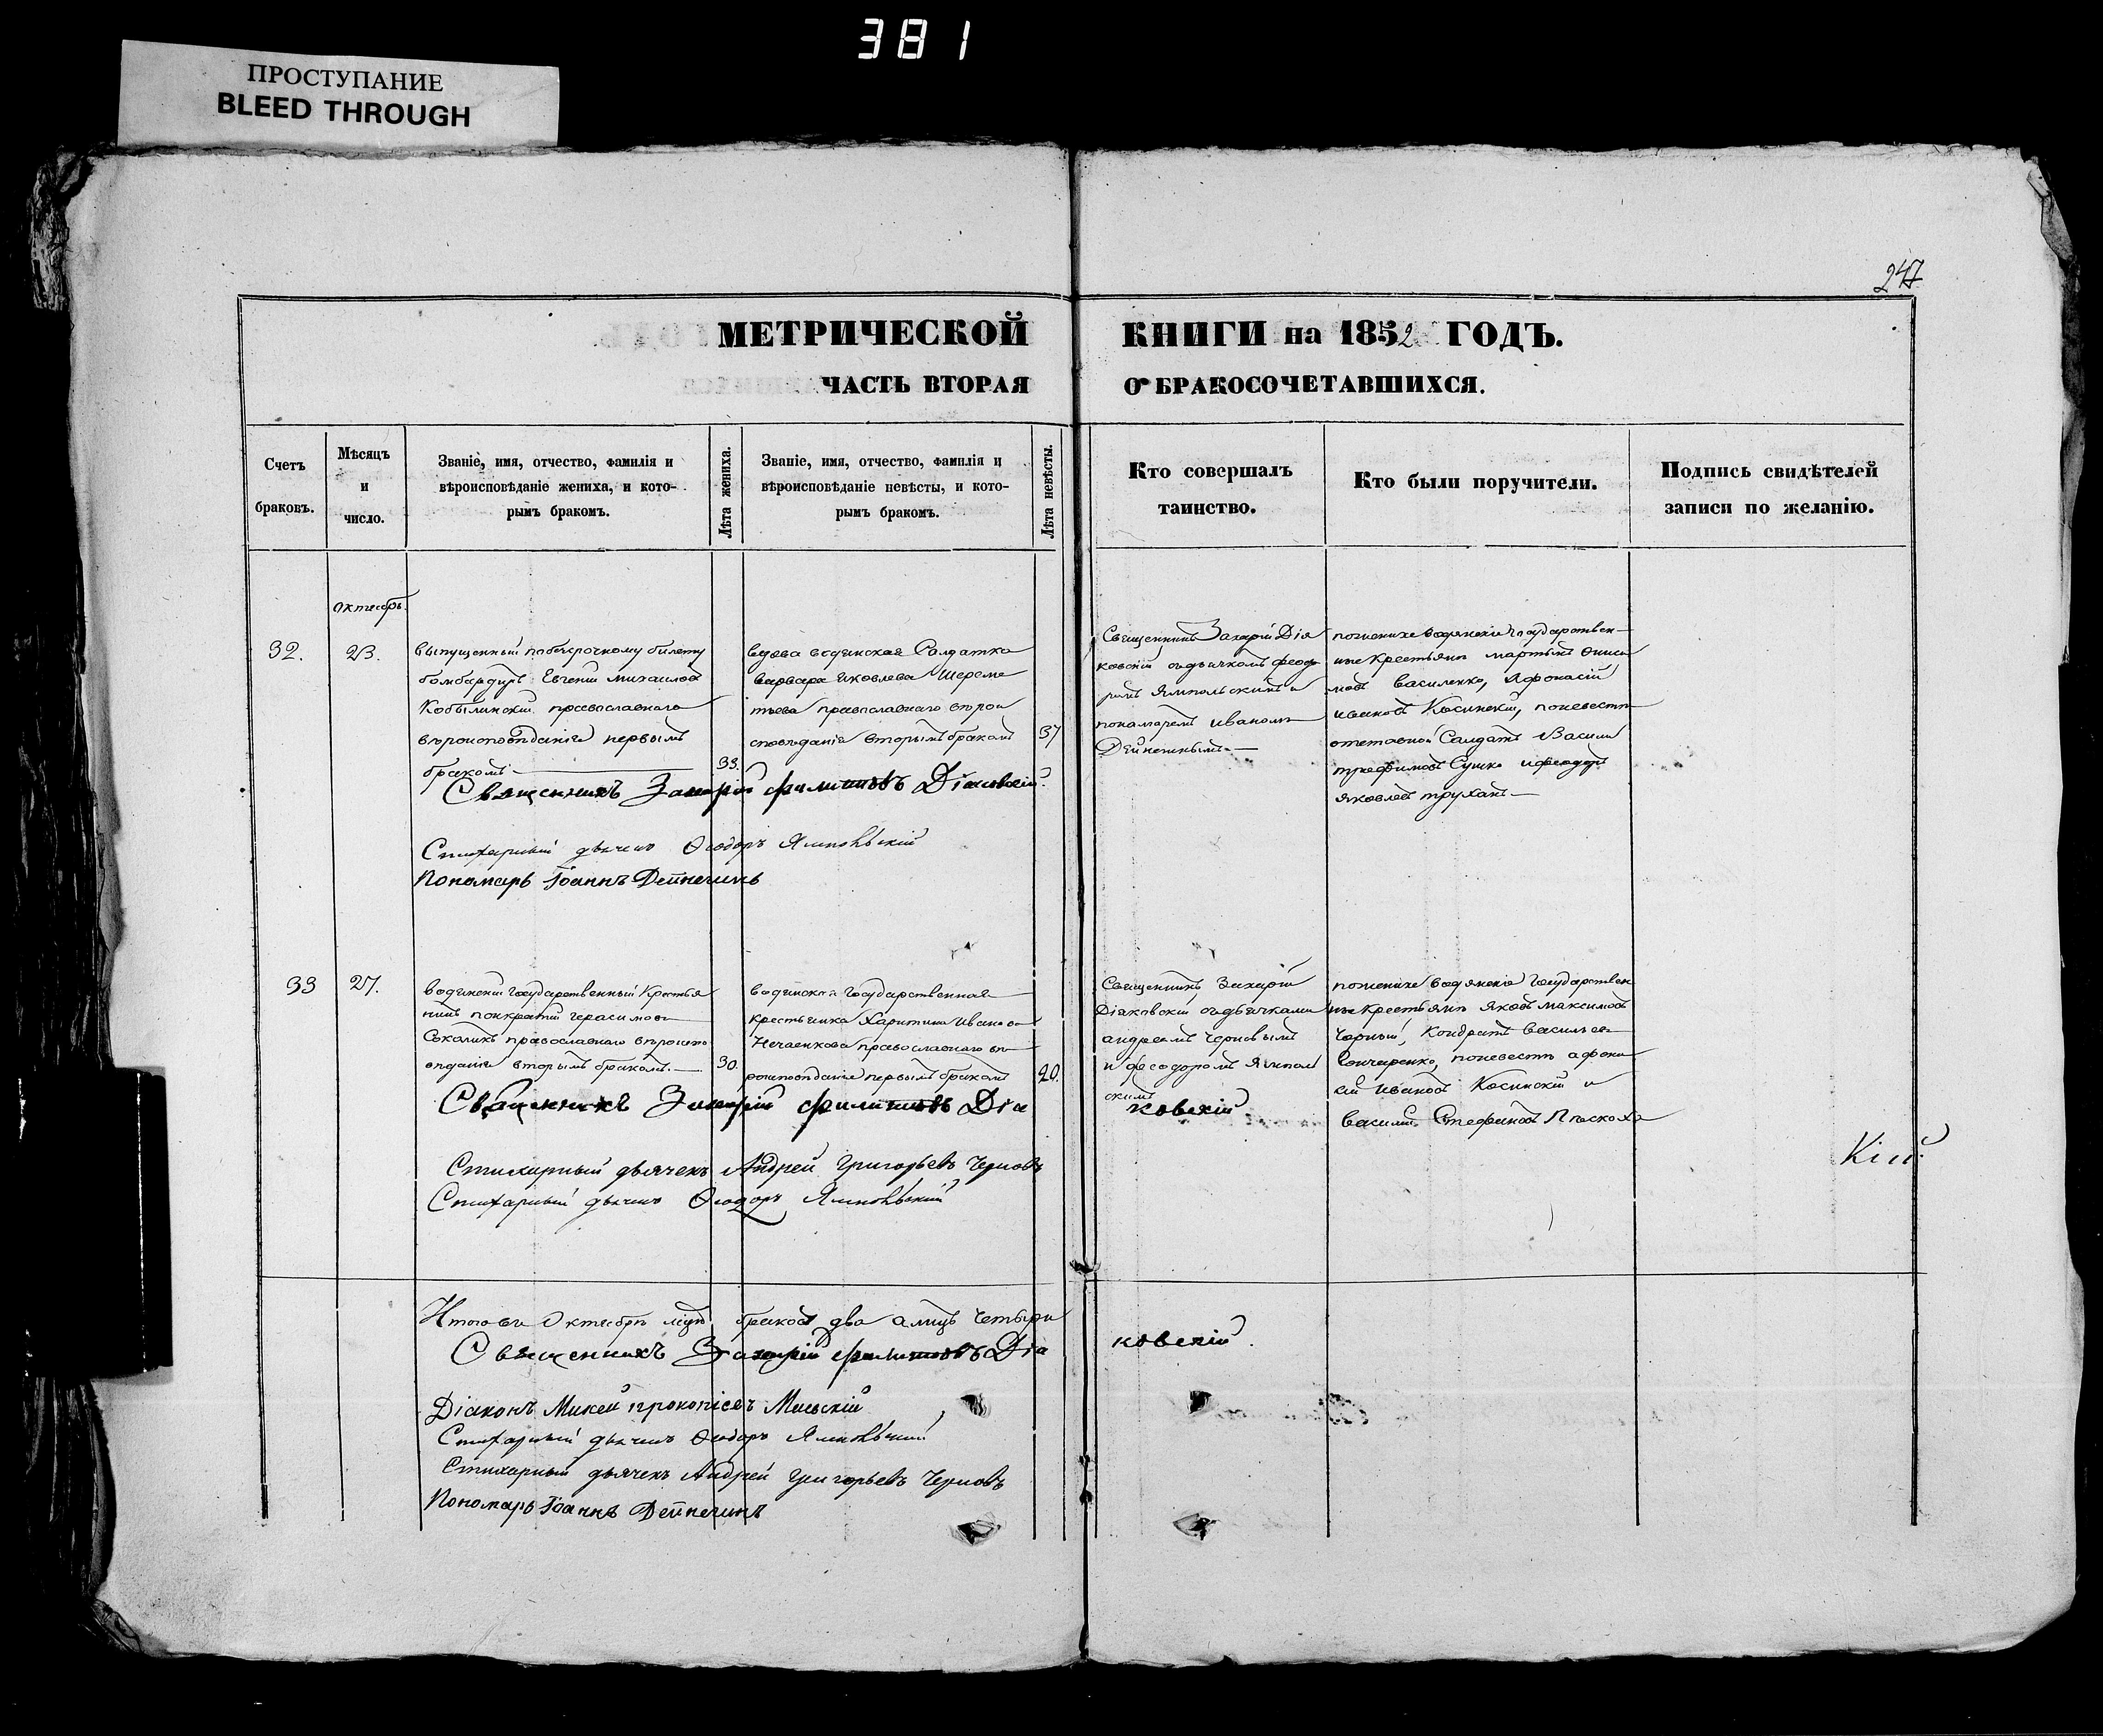 381
ПРОСТУПАНИЕ
BLEED THROUGH
247
МЕТРИЧЕСКОЙ КНИГИ на 1852 ГОДЪ.
ЧАСТЬ ВТОРАЯ О БРАКОСОЧЕТАВШИХСЯ.
Счетъ
браковъ.
Мѣсяцъ
и
число.
Званіе, имя, отчество, фамилія и
вѣроисповѣданіе жениха, и кото-
рымъ бракомъ.
Лѣта жениха.
Званіе, имя, отчество, фамилія и
вѣроисповѣданіе невѣсты, и кото-
рымъ бракомъ.
Лѣта невѣсты.
Кто совершалъ
таинство.
Кто были поручители.
Подпись свидѣтелей
записи по желанію.
Октябрь.
32.
23.
выпущенный по безсрочному билету
бомбардиръ Евгений Михаилов
Кобылинский православнаго
вѣроисповѣданія первымъ
бракомъ
33.
вдова водянская Солдатка
варвара Яковлева Шереме
тьева православнаго вѣрои
сповѣданія вторымъ бракомъ
37
Священникъ Захарій Дія
ковскій съ дьячкомъ Феодо
ромъ Ямпольскимъ и
пономаремъ Иваномъ
Дейнекинымъ
по женихе водянскіе государствен-
ные крестьяне мартынъ Ониси
мовъ Василенко, Афонасій
ивановъ Косинскій, по невесте
отставной Солдатъ Василий
трофимовъ Сушко и феодоръ
яковлевъ труханъ
Священникъ Захарій Филиповъ Діаковскій.
Стихарный дьячекъ Ѳеодоръ Ямпольскій
Пономарь Іоаннъ Дейнекинъ
33
27.
водянский государственный Крестья
нинъ понкратий герасимовъ
Соколикъ православнаго вѣроиспо
вѣданія вторымъ бракомъ.
30.
водянская государственная
крестьянка Харитина Иванова
Нечаенкова православнаго вѣ
роисповѣданія первымъ бракомъ
20.
Священникъ Захарій
Діаковскій съ дьячками
андреемъ Черновымъ
и феодоромъ Ямполь
скимъ
по женихе водянскіе государствен
ные крестьяне Яковъ максимовъ
Чорный, Кондратъ васильевъ
Гончаренко, по невесте афона
сий Ивановъ Косинскій и
василий Стефановъ Пласкоха
Священникъ Захарій Филиповъ Діаковскій
Кій.
Стихарный дьячекъ Андрей Григорьевъ Черновъ
Стихарный дьячекъ Ѳеодоръ Ямпольскій
Итого въ Октябрѣ мцѣ браковъ два а лицъ четыри
Священникъ Захарій Филиповъ Діаковскій.
Діаконъ Михей Прокопіевъ
Стихарный дьячекъ Ѳеодоръ Ямпольскій
Стихарный дьячекъ Андрей Григорьевъ Черновъ
Пономарь Іоаннъ Дейнекинъ